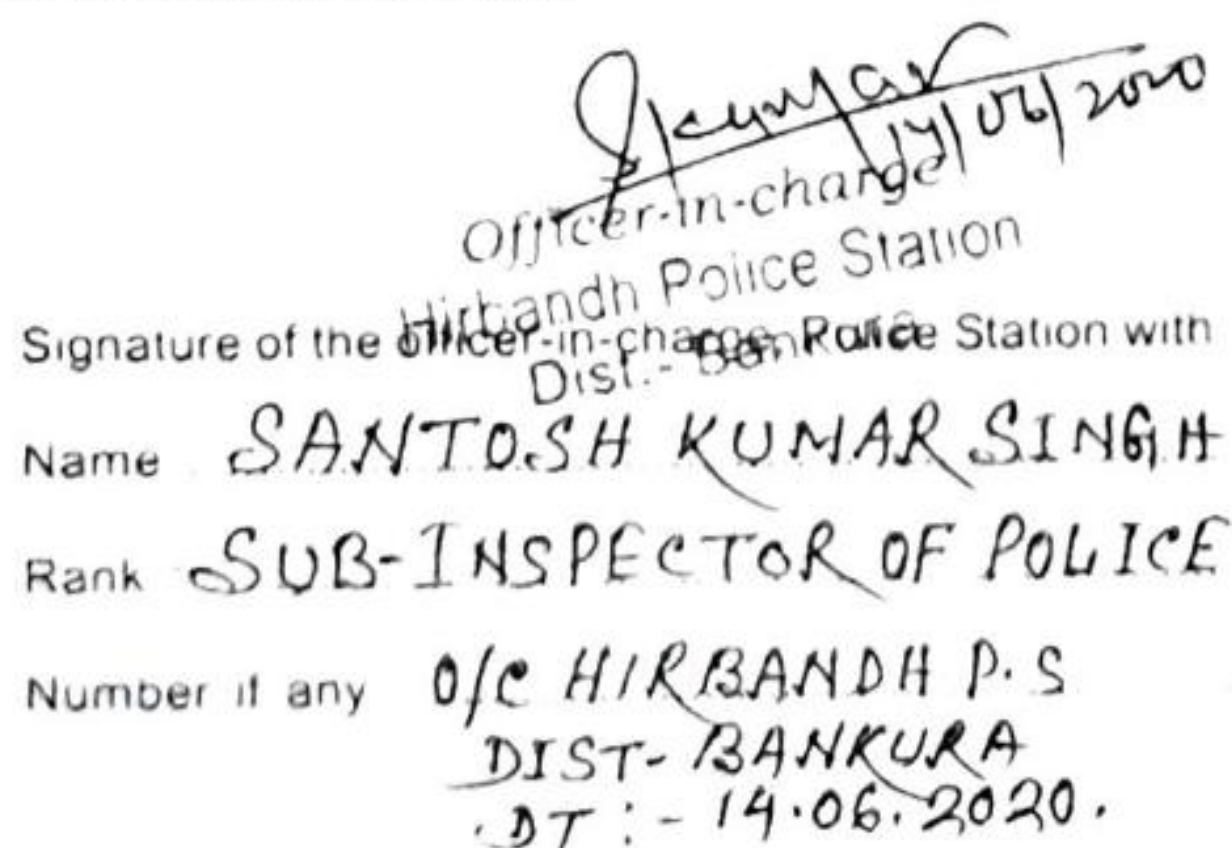 Skumar
14/06/2020
Officer-in-charge
Hirbandh Police Station
Dist.- Bankura
Signature of the officer-in-charge, Police Station with
Name SANTOSH KUMAR SINGH
Rank SUB-INSPECTOR OF POLICE
Number if any O/C HIRBANDH P.S
DIST- BANKURA
DT :- 14.06.2020.